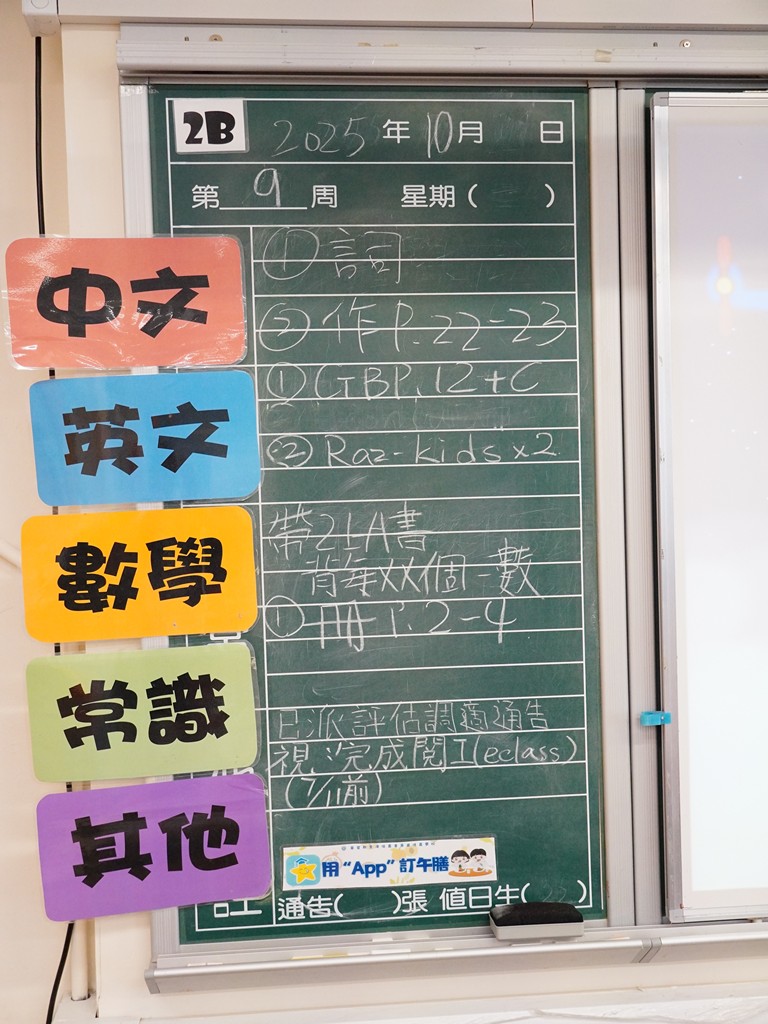 2B 2025 年 10 月 日
第 9 周 星期( )
中文
① 詞
② 作 P. 22-23
英文
① GBP. 12 + C
② Raz-kids x 2
數學
帶 2LA書
背每XX個一數
① 冊 P. 2-4
常識
其他
已派評估調適通告
視:完成閱工(eclass)
(7/11前)
用 “App” 訂午膳
通告( )張 值日生( )